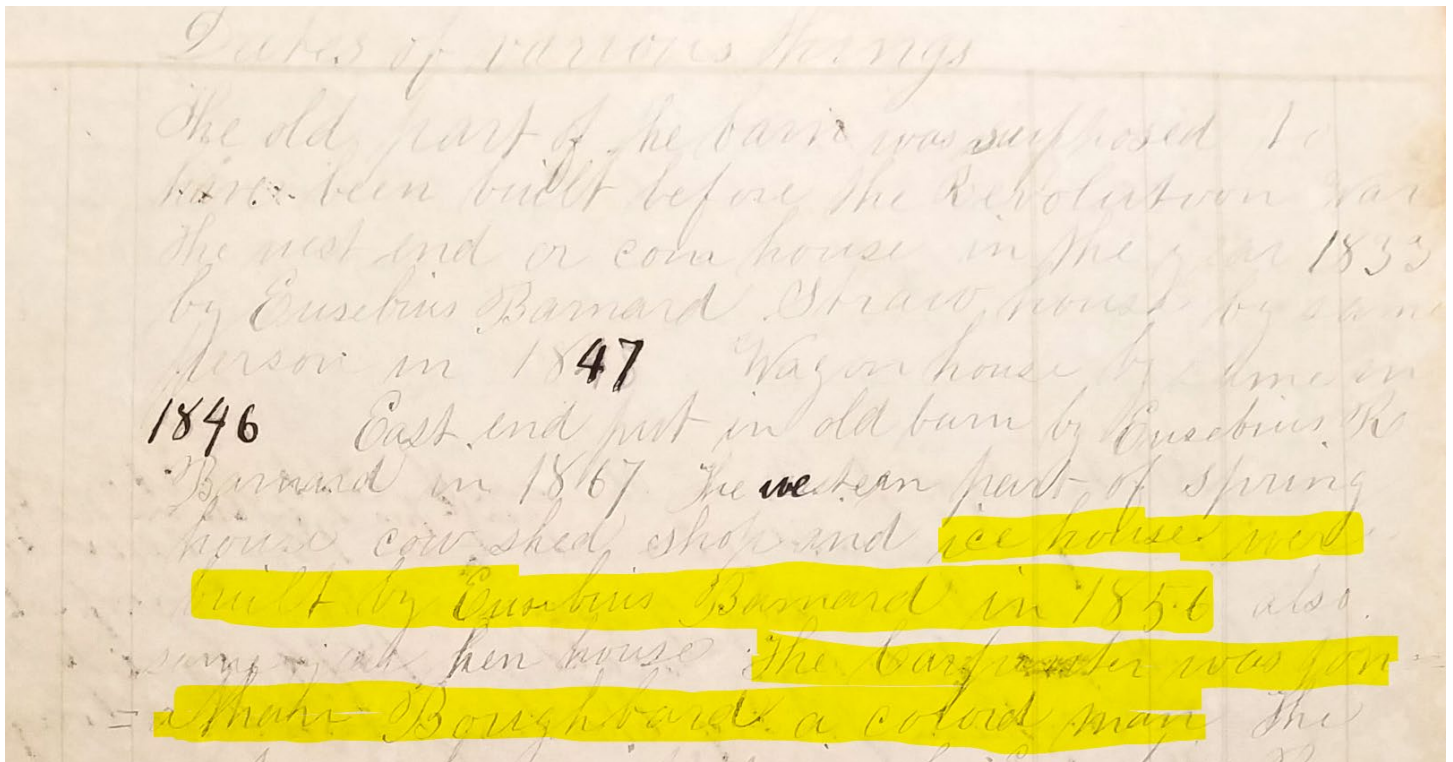 Dates of various things
The old part of the barn was supposed to
have been built before the Revolution War
The west end or corn house in the year 1833
by Eusebius Barnard Straw house by same
person in 1847 Wagon house by same in
1846 East end put in old barn by Eusebius R
Barnard in 1867 The western part of spring
house cow shed shop and ice house were
built by Eusebius Barnard in 1856 also
same year hen house The Carpenter was Jon=
=athan Boughbard a colord man The